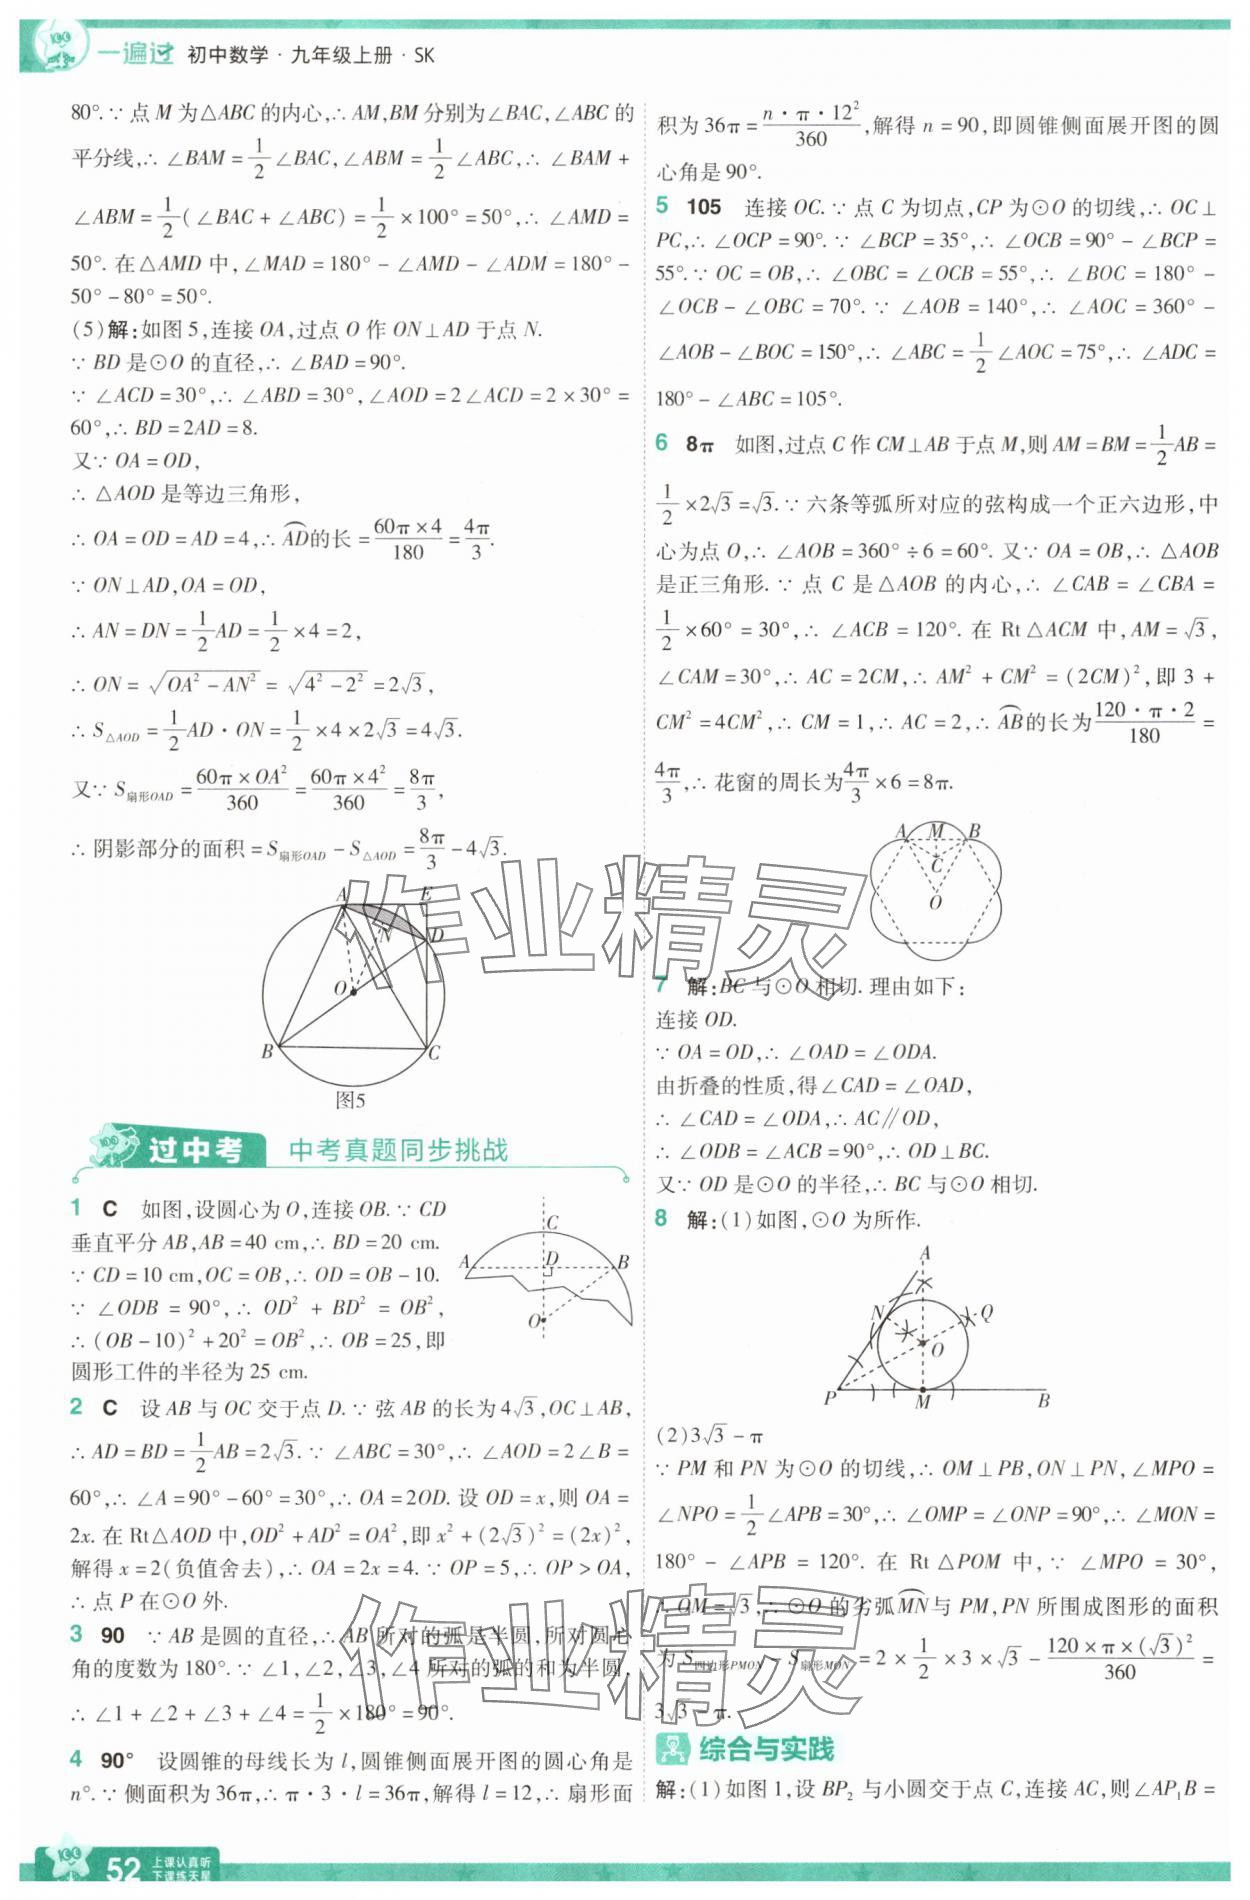 一遍过 初中数学·九年级上册·SK
80°.∵点M为△ABC的内心,∴AM,BM分别为∠BAC,∠ABC的
平分线,∴∠BAM=1/2∠BAC,∠ABM=1/2∠ABC,∴∠BAM+
∠ABM=1/2(∠BAC+∠ABC)=1/2×100°=50°,∴∠AMD=
50°.在△AMD中,∠MAD=180°-∠AMD-∠ADM=180°-
50°-80°=50°.
(5)解:如图5,连接OA,过点O作ON⊥AD于点N.
∵BD是⊙O的直径,∴∠BAD=90°.
∵∠ACD=30°,∴∠ABD=30°,∠AOD=2∠ACD=2×30°=
60°,∴BD=2AD=8.
又∵OA=OD,
∴△AOD是等边三角形,
∴OA=OD=AD=4,∴⌒AD的长=60π×4/180=4π/3.
∵ON⊥AD,OA=OD,
∴AN=DN=1/2AD=1/2×4=2,
∴ON=√(OA²-AN²)=√(4²-2²)=2√3,
∴S△AOD=1/2AD·ON=1/2×4×2√3=4√3.
又∵S扇形OAD=60π×OA²/360=60π×4²/360=8π/3,
∴阴影部分的面积=S扇形OAD-S△AOD=8π/3-4√3.
A E
N D
O
B C
图5
过中考 中考真题同步挑战
1 C 如图,设圆心为O,连接OB.∵CD
垂直平分AB,AB=40 cm,∴BD=20 cm.
∵CD=10 cm,OC=OB,∴OD=OB-10.
∵∠ODB=90°,∴OD²+BD²=OB²,
∴(OB-10)²+20²=OB²,∴OB=25,即
圆形工件的半径为25 cm.
C
A D B
O
2 C 设AB与OC交于点D.∵弦AB的长为4√3,OC⊥AB,
∴AD=BD=1/2AB=2√3.∵∠ABC=30°,∴∠AOD=2∠B=
60°,∴∠A=90°-60°=30°,∴OA=2OD.设OD=x,则OA=
2x.在Rt△AOD中,OD²+AD²=OA²,即x²+(2√3)²=(2x)²,
解得x=2(负值舍去),∴OA=2x=4.∵OP=5,∴OP>OA,
∴点P在⊙O外.
3 90 ∵AB是圆的直径,∴AB所对的弧是半圆,所对圆心
角的度数为180°.∵∠1,∠2,∠3,∠4所对的弧的和为半圆,
∴∠1+∠2+∠3+∠4=1/2×180°=90°.
4 90° 设圆锥的母线长为l,圆锥侧面展开图的圆心角是
n°.∵侧面积为36π,∴π·3·l=36π,解得l=12,∴扇形面
积为36π=n·π·12²/360,解得n=90,即圆锥侧面展开图的圆
心角是90°.
5 105 连接OC.∵点C为切点,CP为⊙O的切线,∴OC⊥
PC,∴∠OCP=90°.∵∠BCP=35°,∴∠OCB=90°-∠BCP=
55°.∵OC=OB,∴∠OBC=∠OCB=55°,∴∠BOC=180°-
∠OCB-∠OBC=70°.∵∠AOB=140°,∴∠AOC=360°-
∠AOB-∠BOC=150°,∴∠ABC=1/2∠AOC=75°,∴∠ADC=
180°-∠ABC=105°.
6 8π 如图,过点C作CM⊥AB于点M,则AM=BM=1/2AB=
1/2×2√3=√3.∵六条等弧所对应的弦构成一个正六边形,中
心为点O,∴∠AOB=360°÷6=60°.又∵OA=OB,∴△AOB
是正三角形.∵点C是△AOB的内心,∴∠CAB=∠CBA=
1/2×60°=30°,∴∠ACB=120°.在Rt△ACM中,AM=√3,
∠CAM=30°,∴AC=2CM,∴AM²+CM²=(2CM)²,即3+
CM²=4CM²,∴CM=1,∴AC=2,∴⌒AB的长为120·π·2/180=
4π/3,∴花窗的周长为4π/3×6=8π.
A M B
C
O
7 解:BC与⊙O相切.理由如下:
连接OD.
∵OA=OD,∴∠OAD=∠ODA.
由折叠的性质,得∠CAD=∠OAD,
∴∠CAD=∠ODA,∴AC∥OD,
∴∠ODB=∠ACB=90°,∴OD⊥BC.
又∵OD是⊙O的半径,∴BC与⊙O相切.
8 解:(1)如图,⊙O为所作.
A
N Q
O
P M B
(2)3√3-π
∵PM和PN为⊙O的切线,∴OM⊥PB,ON⊥PN,∠MPO=
∠NPO=1/2∠APB=30°,∴∠OMP=∠ONP=90°,∴∠MON=
180°-∠APB=120°.在Rt△POM中,∵∠MPO=30°,
∴OM=√3,∴⊙O的劣弧⌒MN与PM,PN所围成图形的面积
为S四边形PMON-S扇形MON=2×1/2×3×√3-120×π×(√3)²/360=
3√3-π.
综合与实践
解:(1)如图1,设BP₂与小圆交于点C,连接AC,则∠AP₁B=
52 上课认真听
下课练天星
作业精灵
作业精灵